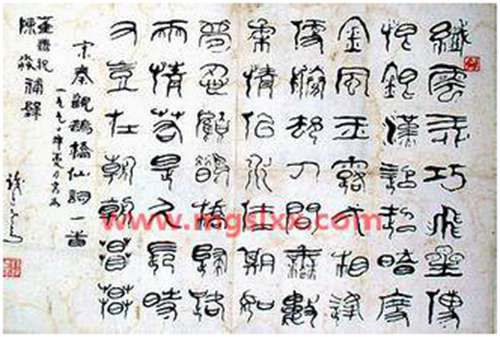 纖雲弄巧飛星傳
恨銀漢迢迢暗度
金風玉露一相逢
便勝卻人間無數
柔情似水佳期如
夢忍顧鵲橋歸路
兩情若是久長時
又豈在朝朝暮暮
宋秦觀鵲橋仙詞一首
一九九
陳 補壁
www.mgslxx.com